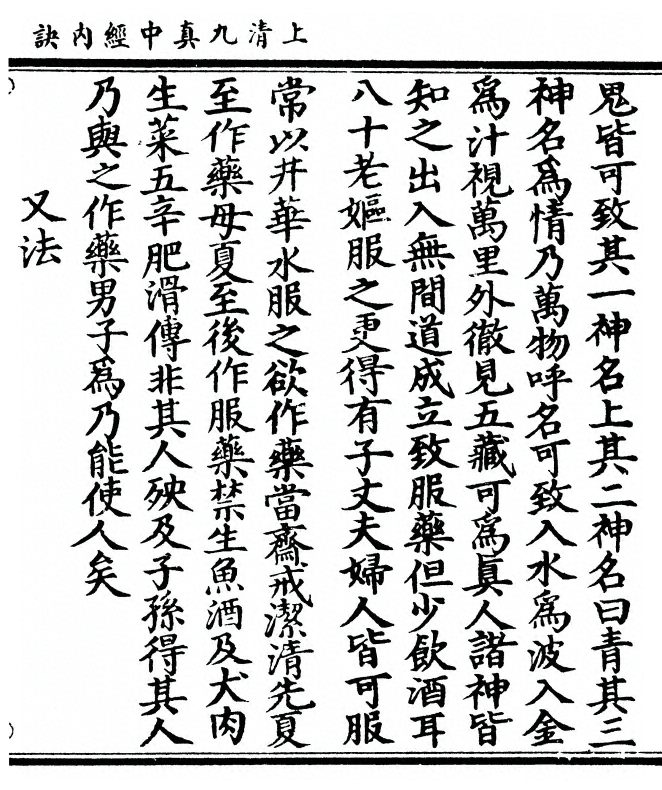 上清九真中經內訣
鬼皆可致其一神名上其二神名曰青其三
神名爲情乃萬物呼名可致入水爲波入金
爲汁視萬里外徹見五藏可爲眞人諸神皆
知之出入無間道成立致服藥但少飲酒耳
八十老嫗服之更得有子丈夫婦人皆可服
常以井華水服之欲作藥當齋戒潔清先夏
至作藥母夏至後作服藥禁生魚酒及犬肉
生菜五辛肥滑傳非其人殃及子孫得其人
乃與之作藥男子爲乃能使人矣
又法